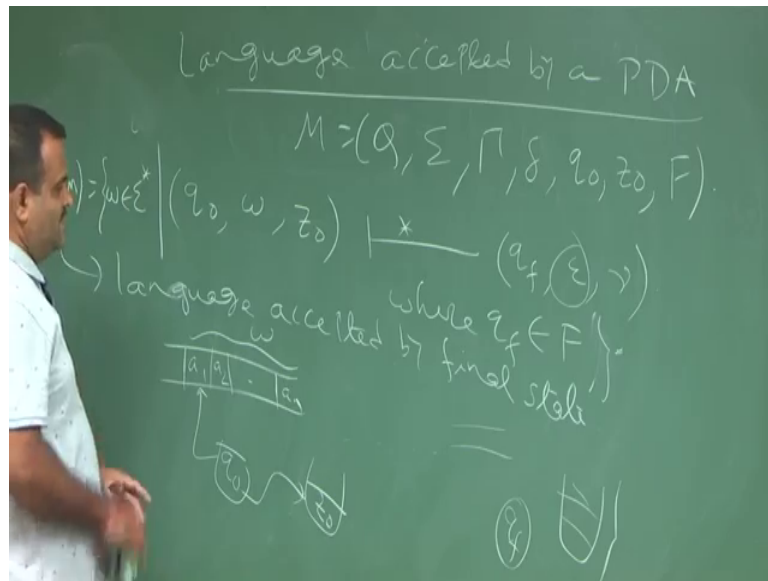 Language accepted by a PDA
M=(Q, Σ, Γ, δ, q0, z0, F).
)={w∈Σ* | (q0, w, z0) |-* (qf, ε, γ)
where qf ∈ F}.
→ language accepted by final state
w
a1 a2 . an
q0 z0
qf γ